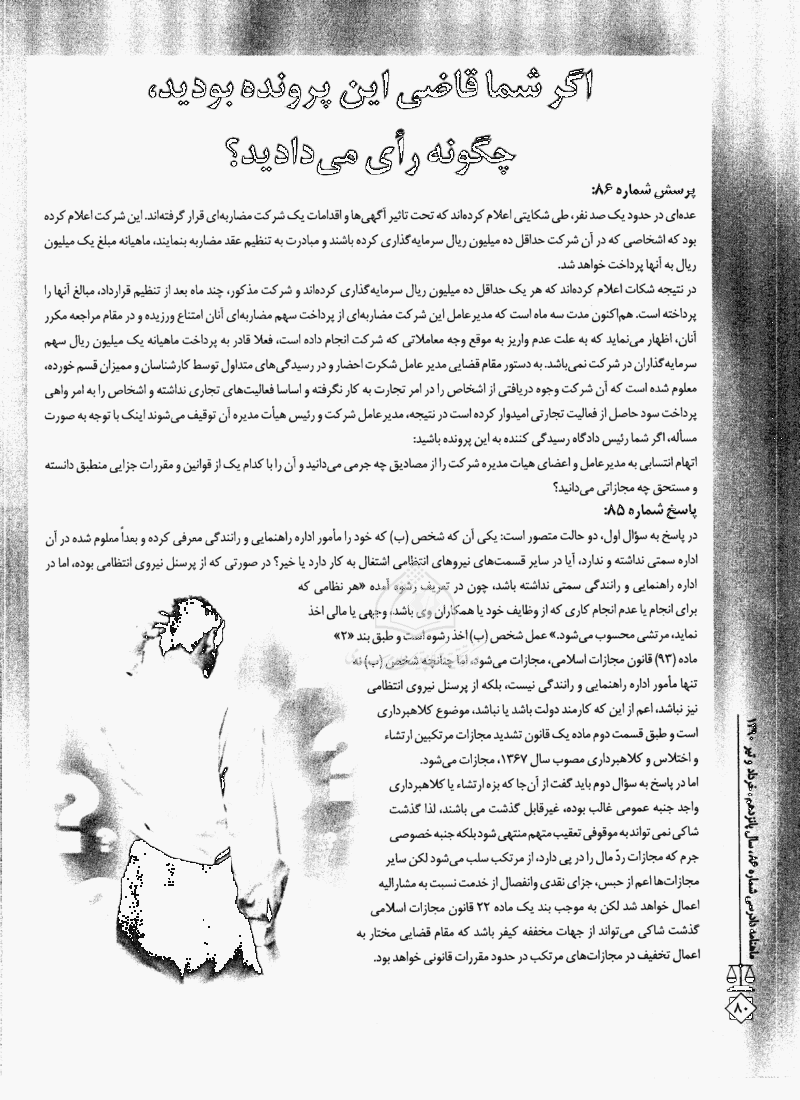 اگر شما قاضی این پرونده بودید،
چگونه رأی می‌دادید؟
پرسش شماره ۸۶:
عده‌ای در حدود یک صد نفر، طی شکایتی اعلام کرده‌اند که تحت تاثیر آگهی‌ها و اقدامات یک شرکت مضاربه‌ای قرار گرفته‌اند. این شرکت اعلام کرده
بود که اشخاصی که در آن شرکت حداقل ده میلیون ریال سرمایه‌گذاری کرده باشند و مبادرت به تنظیم عقد مضاربه بنمایند، ماهیانه مبلغ یک میلیون
ریال به آنها پرداخت خواهد شد.
در نتیجه شکات اعلام کرده‌اند که هر یک حداقل ده میلیون ریال سرمایه‌گذاری کرده‌اند و شرکت مذکور، چند ماه بعد از تنظیم قرارداد، مبالغ آنها را
پرداخته است. هم‌اکنون مدت سه ماه است که مدیرعامل این شرکت مضاربه‌ای از پرداخت سهم مضاربه‌ای آنان امتناع ورزیده و در مقام مراجعه مکرر
آنان، اظهار می‌نماید که به علت عدم واریز به موقع وجه معاملاتی که شرکت انجام داده است، فعلا قادر به پرداخت ماهیانه یک میلیون ریال سهم
سرمایه‌گذاران در شرکت نمی‌باشد. به دستور مقام قضایی مدیر عامل شکرت احضار و در رسیدگی‌های متداول توسط کارشناسان و ممیزان قسم خورده،
معلوم شده است که آن شرکت وجوه دریافتی از اشخاص را در امر تجارت به کار نگرفته و اساسا فعالیت‌های تجاری نداشته و اشخاص را به امر واهی
پرداخت سود حاصل از فعالیت تجارتی امیدوار کرده است در نتیجه، مدیرعامل شرکت و رئیس هیأت مدیره آن توقیف می‌شوند اینک با توجه به صورت
مسأله، اگر شما رئیس دادگاه رسیدگی کننده به این پرونده باشید:
اتهام انتسابی به مدیرعامل و اعضای هیات مدیره شرکت را از مصادیق چه جرمی می‌دانید و آن را با کدام یک از قوانین و مقررات جزایی منطبق دانسته
و مستحق چه مجازاتی می‌دانید؟
پاسخ شماره ۸۵:
در پاسخ به سؤال اول، دو حالت متصور است: یکی آن که شخص (ب) که خود را مأمور اداره راهنمایی و رانندگی معرفی کرده و بعداً معلوم شده در آن
اداره سمتی نداشته و ندارد، آیا در سایر قسمت‌های نیروهای انتظامی اشتغال به کار دارد یا خیر؟ در صورتی که از پرسنل نیروی انتظامی بوده، اما در
اداره راهنمایی و رانندگی سمتی نداشته باشد، چون در تعریف رشوه آمده «هر نظامی که
برای انجام یا عدم انجام کاری که از وظایف خود یا همکاران وی باشد، وجهی یا مالی اخذ
نماید، مرتشی محسوب می‌شود.» عمل شخص (ب) اخذ رشوه است و طبق بند «۲»
ماده (۹۳) قانون مجازات اسلامی، مجازات می‌شود، اما چنانچه شخص (ب) نه
تنها مأمور اداره راهنمایی و رانندگی نیست، بلکه از پرسنل نیروی انتظامی
نیز نباشد، اعم از این که کارمند دولت باشد یا نباشد، موضوع کلاهبرداری
است و طبق قسمت دوم ماده یک قانون تشدید مجازات مرتکبین ارتشاء
و اختلاس و کلاهبرداری مصوب سال ۱۳۶۷، مجازات می‌شود.
اما در پاسخ به سؤال دوم باید گفت از آن‌جا که بزه ارتشاء یا کلاهبرداری
واجد جنبه عمومی غالب بوده، غیرقابل گذشت می باشند، لذا گذشت
شاکی نمی تواند به موقوفی تعقیب متهم منتهی شود بلکه جنبه خصوصی
جرم که مجازات ردّ مال را در پی دارد، از مرتکب سلب می‌شود لکن سایر
مجازات‌ها اعم از حبس، جزای نقدی وانفصال از خدمت نسبت به مشارالیه
اعمال خواهد شد لکن به موجب بند یک ماده ۲۲ قانون مجازات اسلامی
گذشت شاکی می‌تواند از جهات مخففه کیفر باشد که مقام قضایی مختار به
اعمال تخفیف در مجازات‌های مرتکب در حدود مقررات قانونی خواهد بود.
ماهنامه دادرسی شماره ۸۶، سال پانزدهم، خرداد و تیر ۱۳۹۰
۸۰